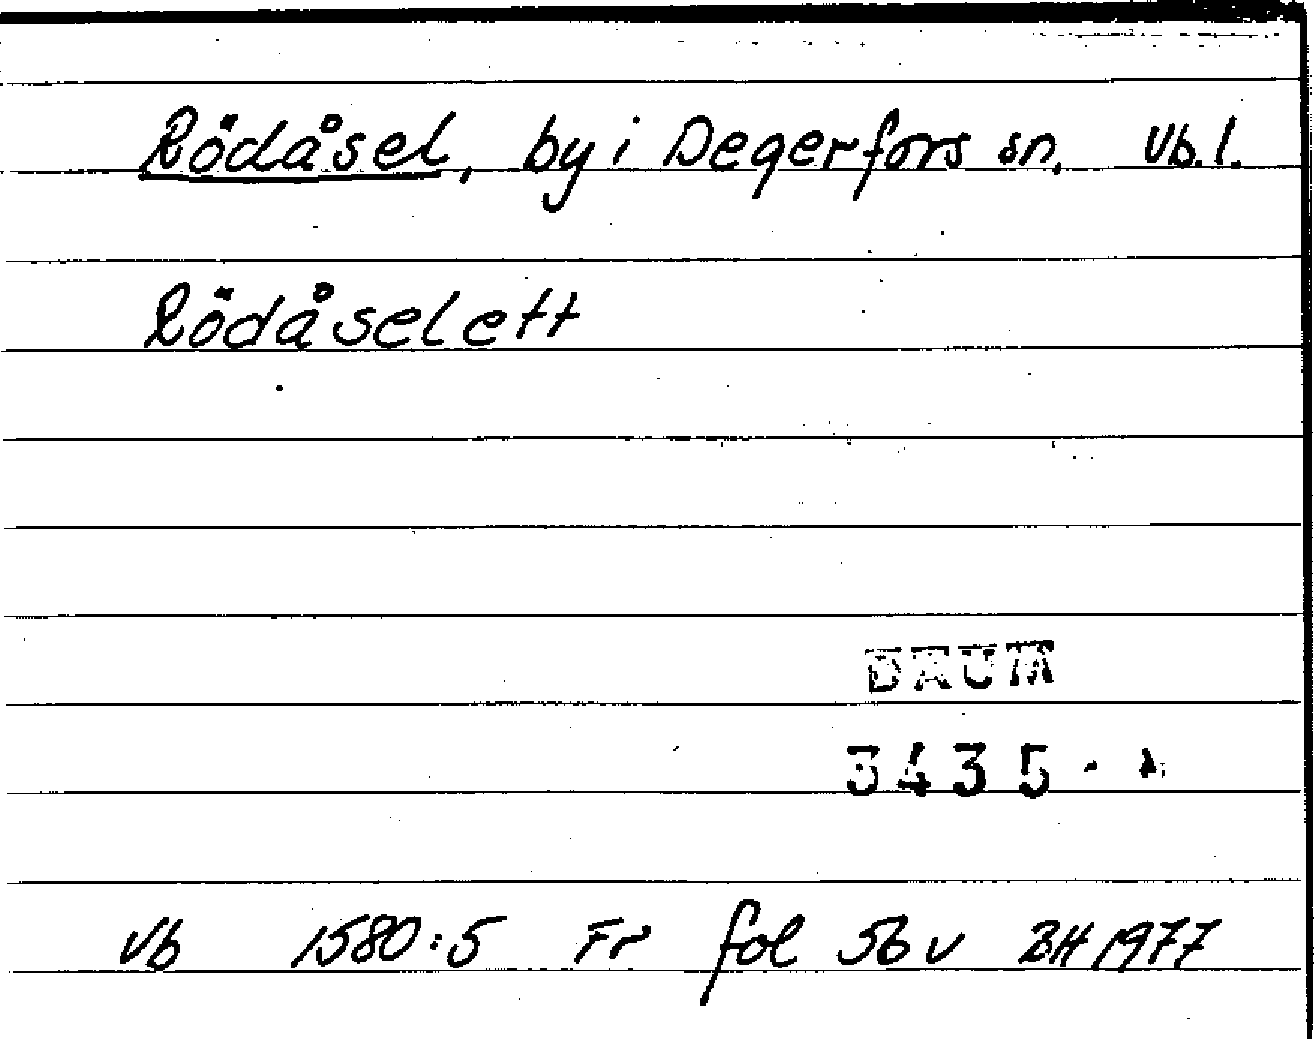 Rödåsel, by i Degerfors sn. Vb.l.
Rödåselett
DAUM
3435
Vb 1580:5 Fr fol 56 v BH 1977